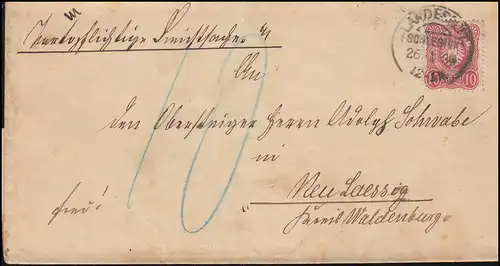 Portopflichtige Dienstsache
LANDESHUT
SCHLESIEN
26
12
10
An
den Obersteiger Herrn Adolph Schwabe
in
10
Neu Laessig
frei!
Kreis Waldenburg